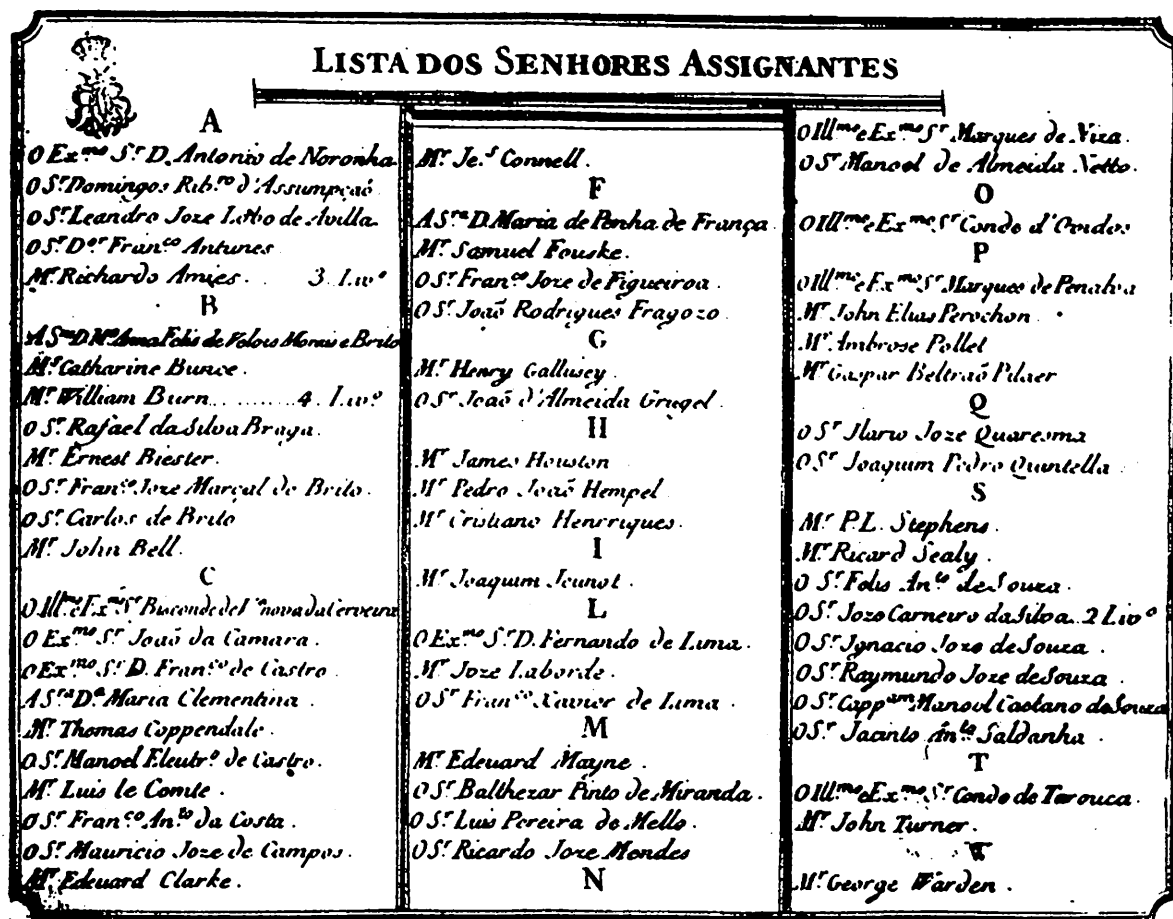 LISTA DOS SENHORES ASSIGNANTES
A
O Ex.mo S.r D. Antonio de Noronha
O S.r Domingos Rib.ro d'Assumpçaõ
O S.r Leandro Joze Lobo de Avilla.
O S.r D.or Fran.co Antunes
M.r Richardo Amies. 3. Liv.o
B
A S.ra D. M.a Anna Felis de Velois Morais e Brito
M.s Catharine Bunce.
M.r William Burn......... 4. Liv.o
O S.r Rafael da Silva Braga.
M.r Ernest Biester.
O S.r Fran.co Joze Marçal de Brito.
O S.r Carlos de Brito
M.r John Bell.
C
O Ill.mo e Ex.mo S.r Bisconde de V.a nova da Cerveira
O Ex.mo S.r Joaõ da Camara.
O Ex.mo S.r D. Fran.co de Castro
A S.ra D.a Maria Clementina.
M.r Thomas Coppendale.
O S.r Manoel Eleutr.o de Castro.
M.r Luis le Comte.
O S.r Fran.co An.to da Costa.
O S.r Mauricio Joze de Campos.
M.r Edeuard Clarke.
M.r Je.s Connell.
F
A S.ra D. Maria de Penha de França
M.r Samuel Fouske.
O S.r Fran.co Joze de Figueiroa.
O S.r Joaõ Rodrigues Fragozo.
G
M.r Henry Gallusey.
O S.r Joaõ d'Almeida Grugel.
H
M.r James Houston
M.r Pedro Joaõ Hempel.
M.r Cristiano Henrriques.
I
M.r Joaquim Jeunot.
L
O Ex.mo S.r D. Fernando de Lima.
M.r Joze Laborde.
O S.r Fran.co Xavier de Lima.
M
M.r Edeuard Mayne.
O S.r Balthezar Pinto de Miranda.
O S.r Luis Pereira de Mello.
O S.r Ricardo Joze Mendes
N
O Ill.mo e Ex.mo S.r Marques de Niza.
O S.r Manoel de Almeida Netto.
O
O Ill.mo e Ex.mo S.r Conde d'Ovidos
P
O Ill.mo e Ex.mo S.r Marques de Penalva
M.r John Elias Perochon.
M.r Ambrose Pollet
M.r Gaspar Beltraõ Pilaer
Q
O S.r Ilario Joze Quaresma
O S.r Joaquim Pedro Quintella.
S
M.r P.L. Stephens.
M.r Ricard Sealy.
O S.r Felis An.to de Souza.
O S.r Joze Carneiro da Silva.. 2 Liv.o
O S.r Ignacio Joze de Souza.
O S.r Raymundo Joze de Souza.
O S.r Capp.am Manoel Caetano de Souza
O S.r Jacinto An.to Saldanha.
T
O Ill.mo e Ex.mo S.r Conde de Tarouca.
M.r John Turner.
W
M.r George Warden.